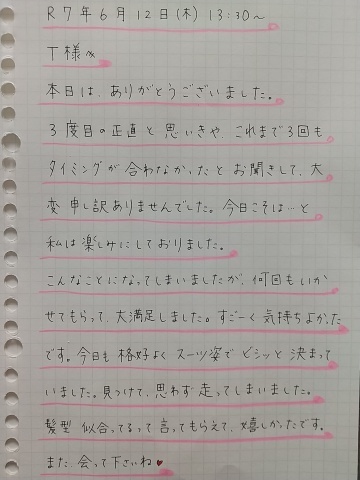 R7年6月12日(木) 13:30~
T様
本日は、ありがとうございました。
3度目の正直と思いきや、これまで3回も
タイミングが合わなかったとお聞きして、大
変申し訳ありませんでした。今日こそは…と
私は楽しみにしておりました。
こんなことになってしまいましたが、何回もいか
せてもらって、大満足しました。すごーく気持ちよかった
です。今日も格好よくスーツ姿でビシッと決まって
いました。見つけて、思わず走ってしまいました。
髪型似合ってるって言ってもらえて、嬉しかったです。
また、会って下さいね♥